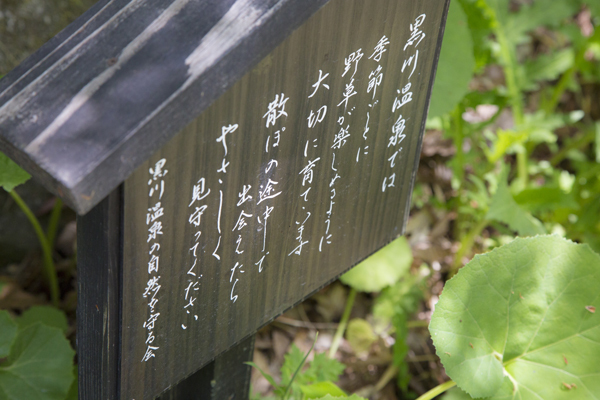 黒川温泉では
季節ごとに
野草が楽しめるように
大切に育ています
散ぽの途中で
出会えたら
やさしく
見守ってください
黒川温泉の自然を守る会